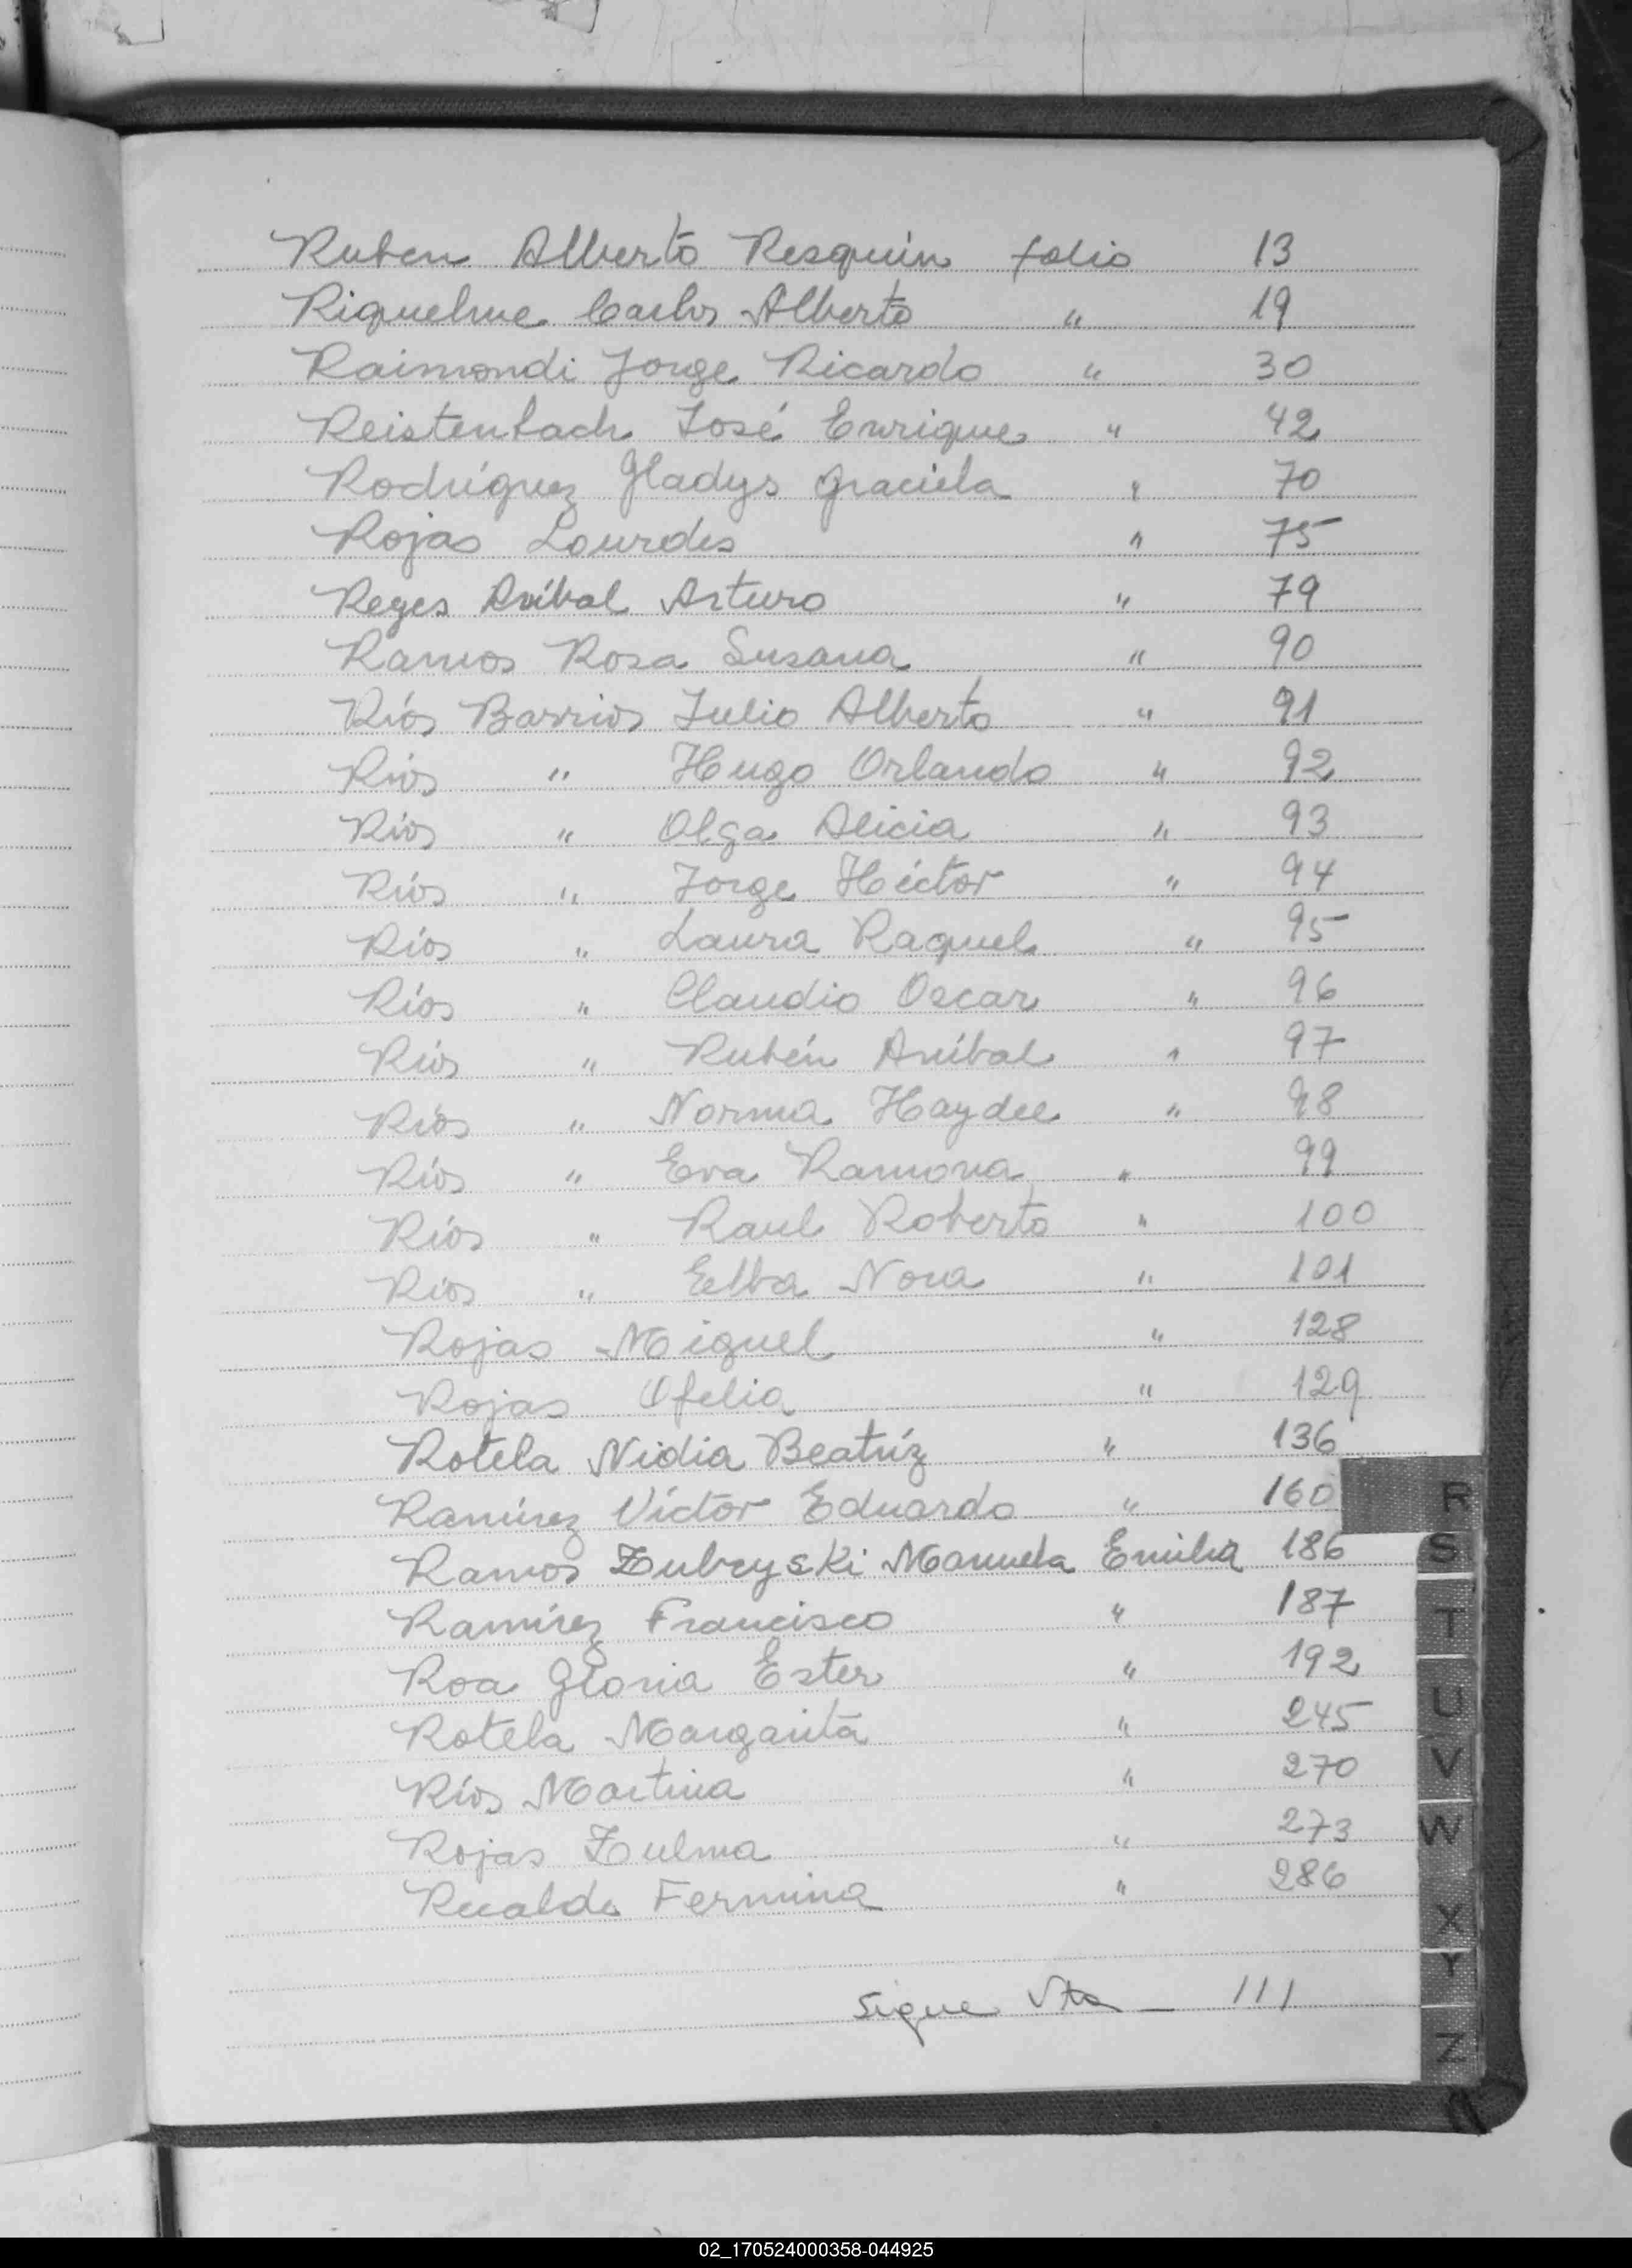 Ruben Alberto Resquin folio 13
Riquelme Carlos Alberto " 19
Raimondi Jorge Ricardo " 30
Reistenbach José Enrique " 42
Rodríguez Gladys Graciela " 70
Rojas Lourdes " 75
Reges Aníbal Arturo " 79
Ramos Rosa Susana " 90
Ríos Barrios Julio Alberto " 91
Ríos " Hugo Orlando " 92
Ríos " Olga Alicia " 93
Ríos " Jorge Héctor " 94
Ríos " Laura Raquel " 95
Ríos " Claudio Oscar " 96
Ríos " Rubén Aníbal " 97
Ríos " Norma Haydee " 98
Ríos " Eva Ramona " 99
Ríos " Raul Roberto " 100
Ríos " Elba " 101
Rojas Miguel " 128
Rojas Ofelia " 129
Rotela Nidia Beatríz " 136
Ramírez Víctor Eduardo " 160
R
Ramos Manuela Emilia 186
S
Ramírez Francisco " 187
T
Roa Gloria Ester " 192
Rotela Margarita " 245
U
Ríos Martina " 270
V
Rojas Zulma " 273
W
Fermina " 286
X
Y
Sigue Vta — 111
Z
02_170524000358-044925